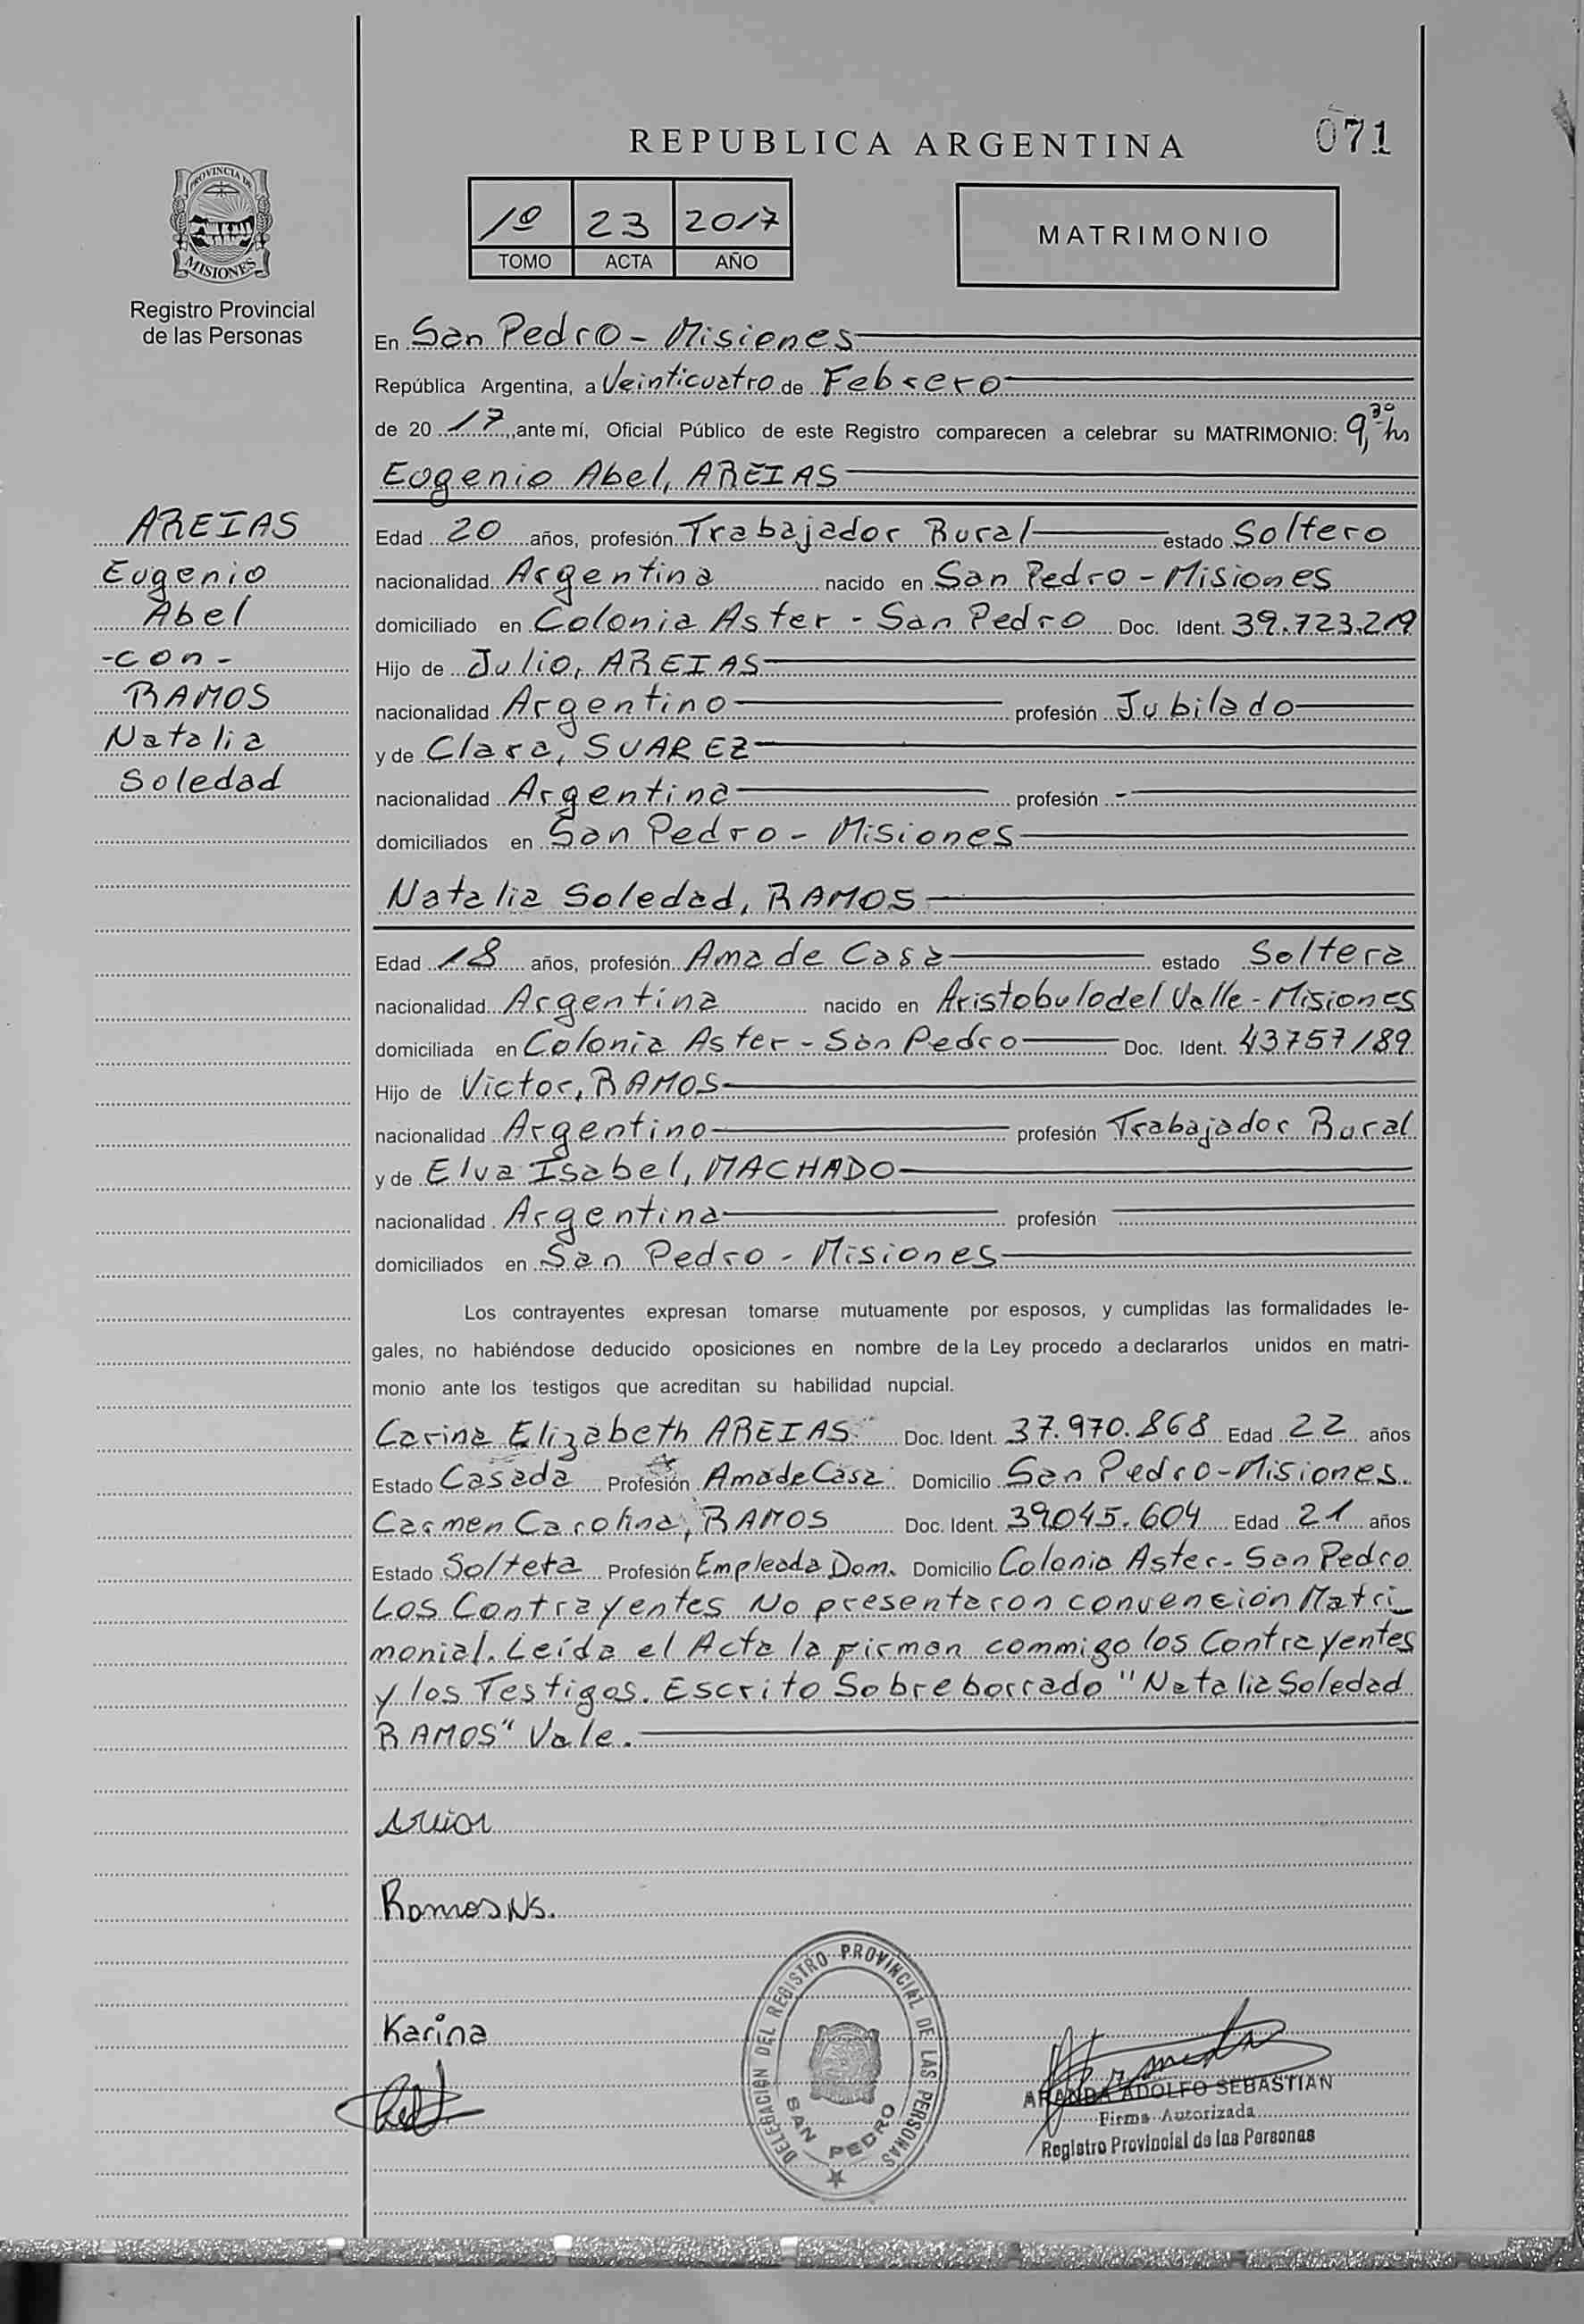 REPUBLICA ARGENTINA
071
PROVINCIA DE
MISIONES
Registro Provincial
de las Personas
1º 23 2017
TOMO ACTA AÑO
MATRIMONIO
En San Pedro - Misiones
República Argentina, a Veinticuatro de Febrero
de 20 17, ante mí, Oficial Público de este Registro comparecen a celebrar su MATRIMONIO: 9,30 hs
Eugenio Abel, AREIAS
AREIAS
Eugenio
Abel
-con-
RAMOS
Natalia
Soledad
Edad 20 años, profesión Trabajador Rural estado Soltero
nacionalidad Argentina nacido en San Pedro - Misiones
domiciliado en Colonia Aster - San Pedro Doc. Ident. 39.723.219
Hijo de Julio, AREIAS
nacionalidad Argentino profesión Jubilado
y de Clara, SUAREZ
nacionalidad Argentina profesión -
domiciliados en San Pedro - Misiones
Natalia Soledad, RAMOS
Edad 18 años, profesión Ama de Casa estado Soltera
nacionalidad Argentina nacido en Aristobulo del Valle - Misiones
domiciliada en Colonia Aster - San Pedro Doc. Ident. 43757189
Hijo de Victor, RAMOS
nacionalidad Argentino profesión Trabajador Rural
y de Elva Isabel, MACHADO
nacionalidad Argentina profesión
domiciliados en San Pedro - Misiones
Los contrayentes expresan tomarse mutuamente por esposos, y cumplidas las formalidades le-
gales, no habiéndose deducido oposiciones en nombre de la Ley procedo a declararlos unidos en matri-
monio ante los testigos que acreditan su habilidad nupcial.
Carina Elizabeth AREIAS Doc. Ident. 37.970.868 Edad 22 años
Estado Casada Profesión Ama de Casa Domicilio San Pedro - Misiones.
Carmen Carolina, RAMOS Doc. Ident. 39045.604 Edad 21 años
Estado Soltera Profesión Empleada Dom. Domicilio Colonia Aster - San Pedro
Los Contrayentes No presentaron convención Matri
monial. Leída el Acta la firman commigo los Contrayentes
y los Testigos. Escrito Sobreborrado "Natalia Soledad
RAMOS" Vale.
Ramos NS.
Karina
DELEGACIÓN DEL REGISTRO PROVINCIAL DE LAS PERSONAS
SAN PEDRO
ARANDA ADOLFO SEBASTIAN
Firma Autorizada
Registro Provincial de las Personas